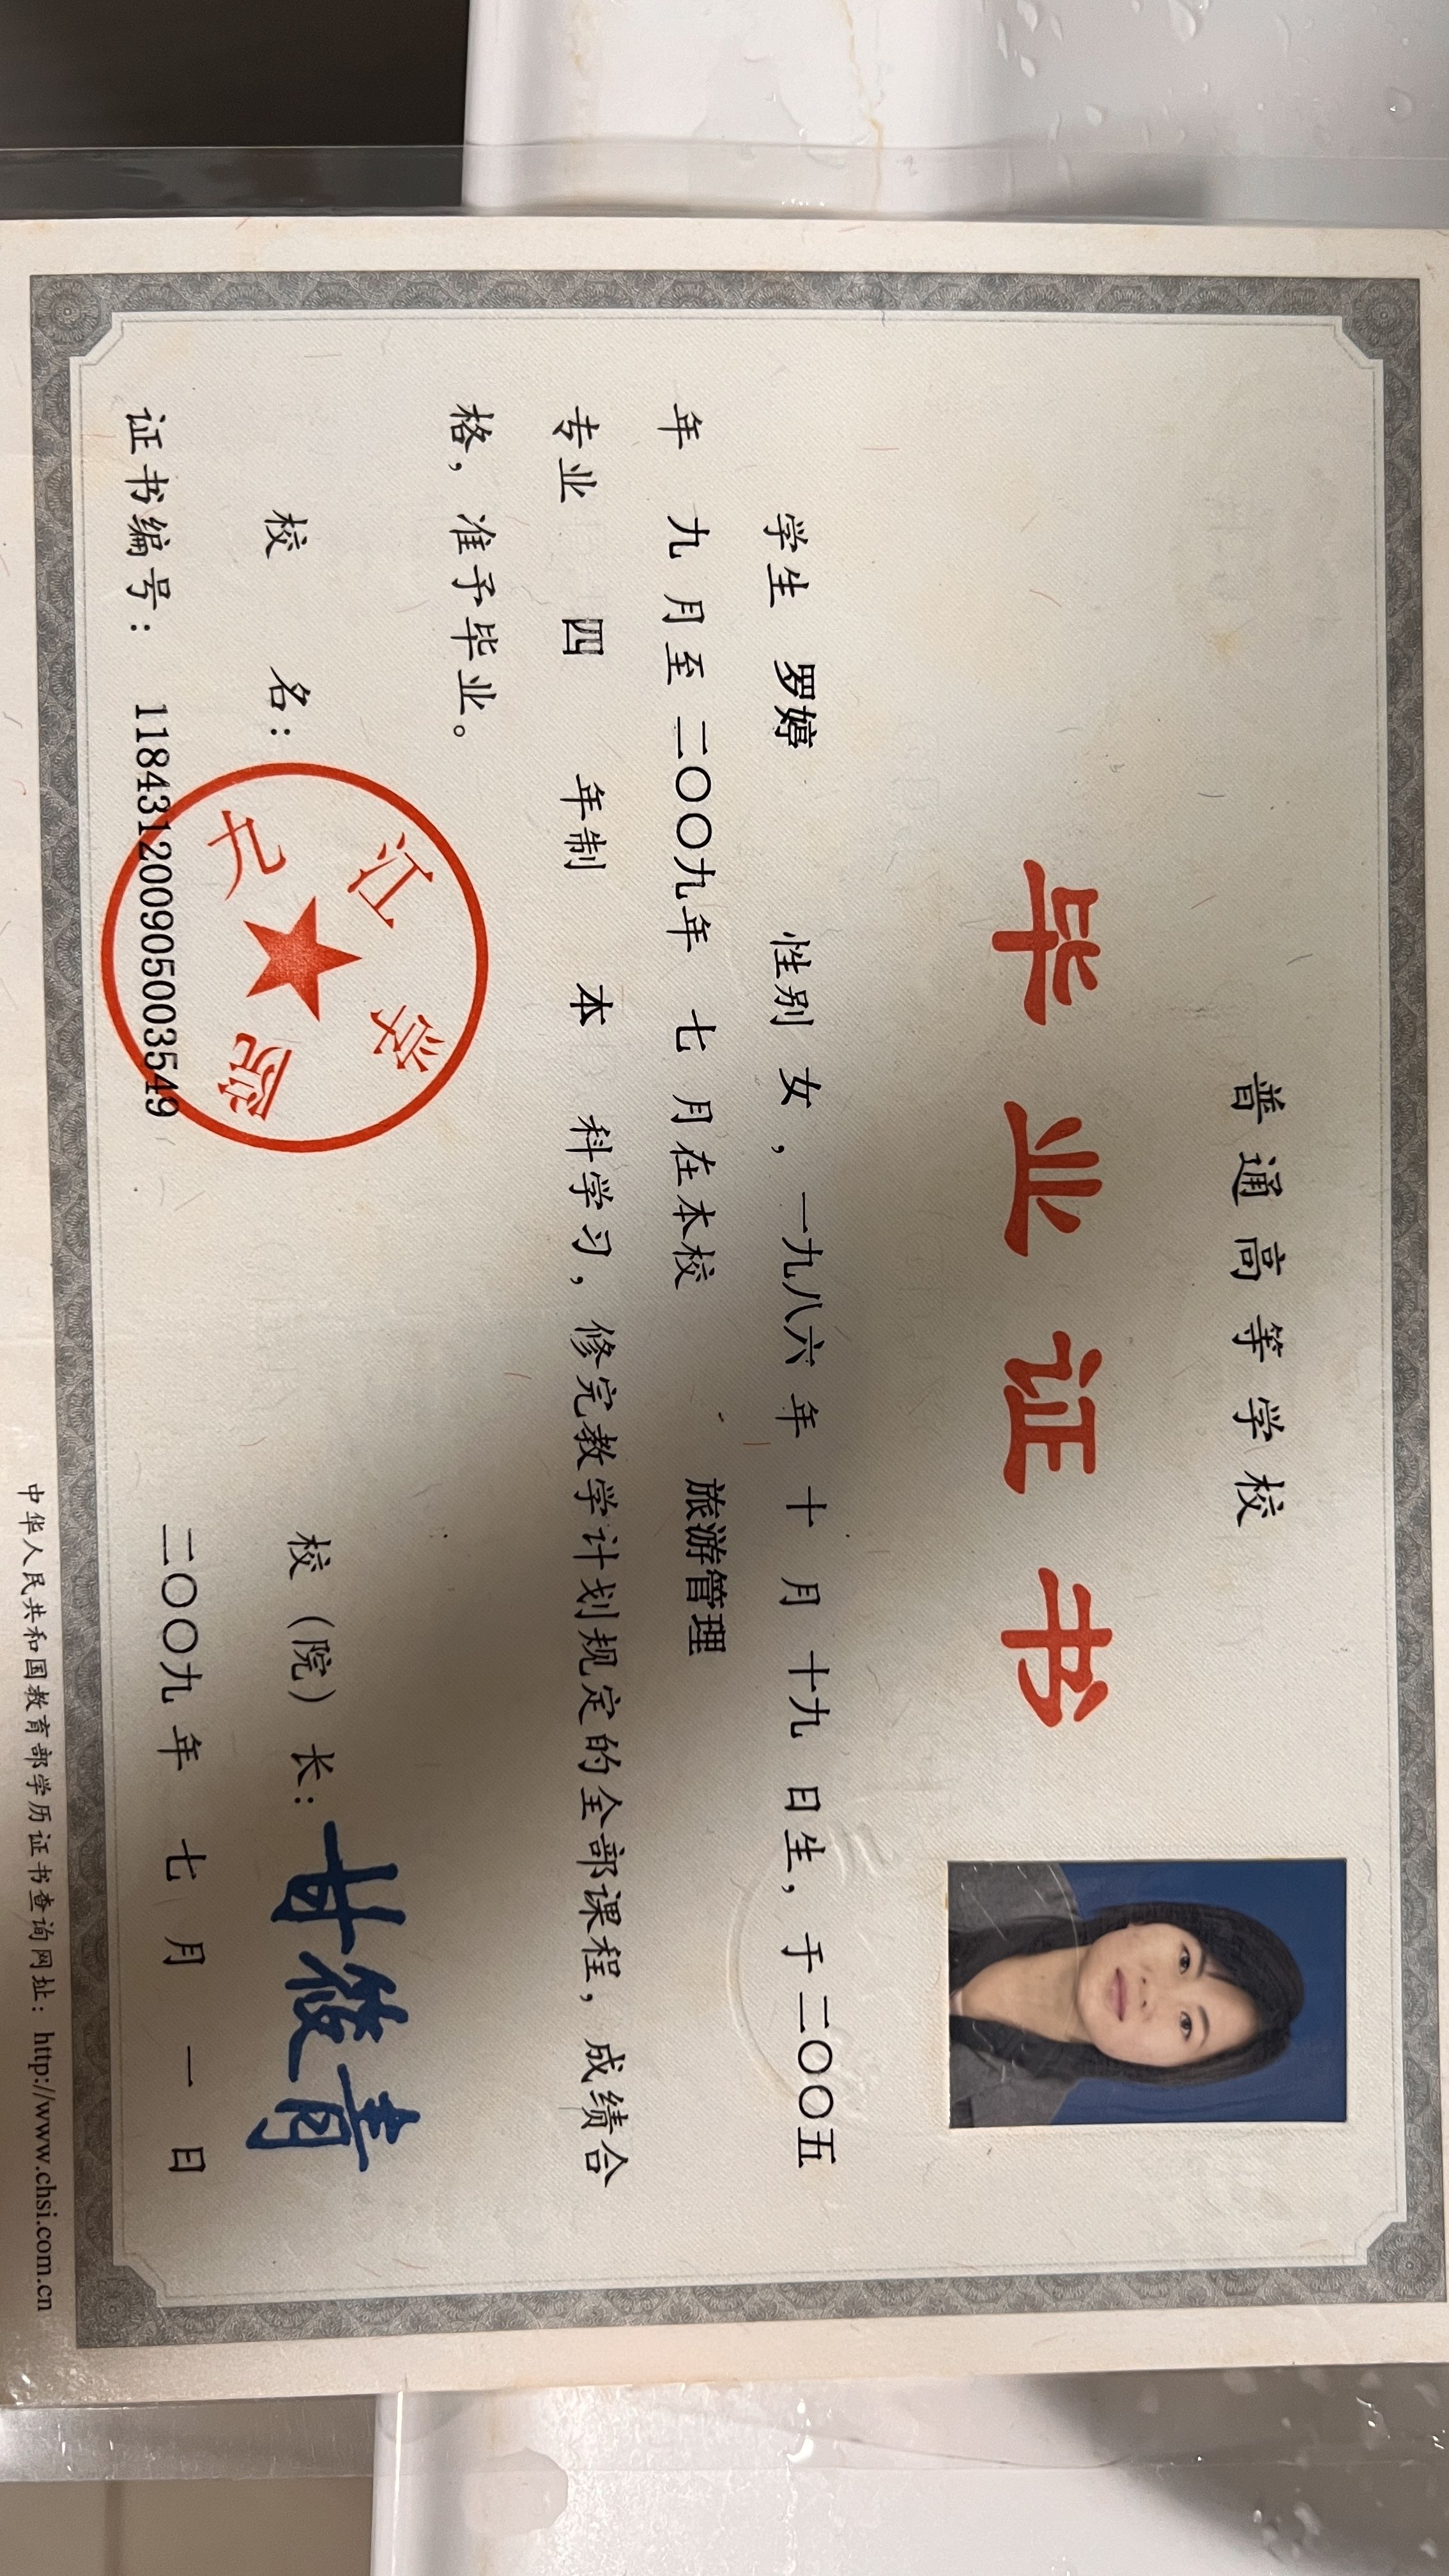 普通高等学校
毕业证书
学生 罗婷 性别 女，一九八六 年 十 月 十九 日生，于二〇〇五
年 九 月至 二〇〇九年 七 月在本校 旅游管理
专业 四 年制 本 科学习，修完教学计划规定的全部课程，成绩合
格，准予毕业。
校 名：
九江学院
校（院）长：
甘筱青
证书编号： 118431200905003549
二〇〇九 年 七 月 一 日
中华人民共和国教育部学历证书查询网址：http://www.chsi.com.cn